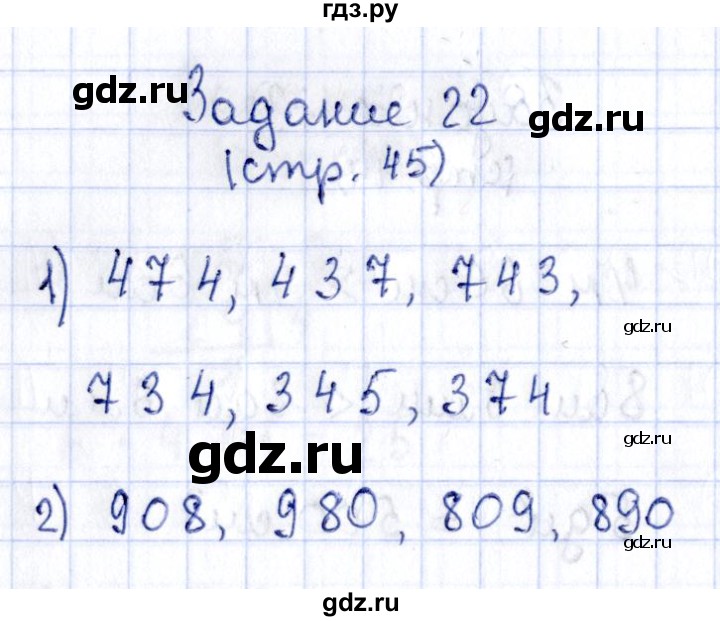 гдз.ру
gdz.ru
Задание 22
(стр. 45)
1) 474, 437, 743,
gdz.ru
734, 345, 374
gdz.ru
gdz.ru
2) 908, 980, 809, 890
gdz.ru
gdz.ru